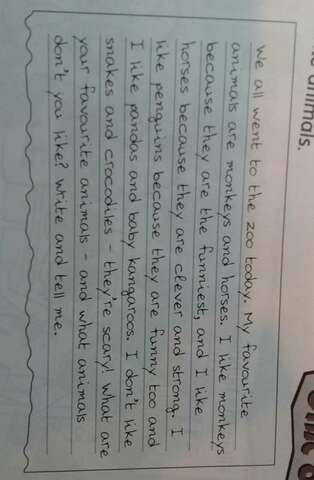 animals.
We all went to the zoo today. My favourite
animals are monkeys and horses. I like monkeys
because they are the funniest, and I like
horses because they are clever and strong. I
like penguins because they are funny too and
I like pandas and baby kangaroos. I don't like
snakes and crocodiles - they're scary! What are
your favourite animals - and what animals
don't you like? Write and tell me.